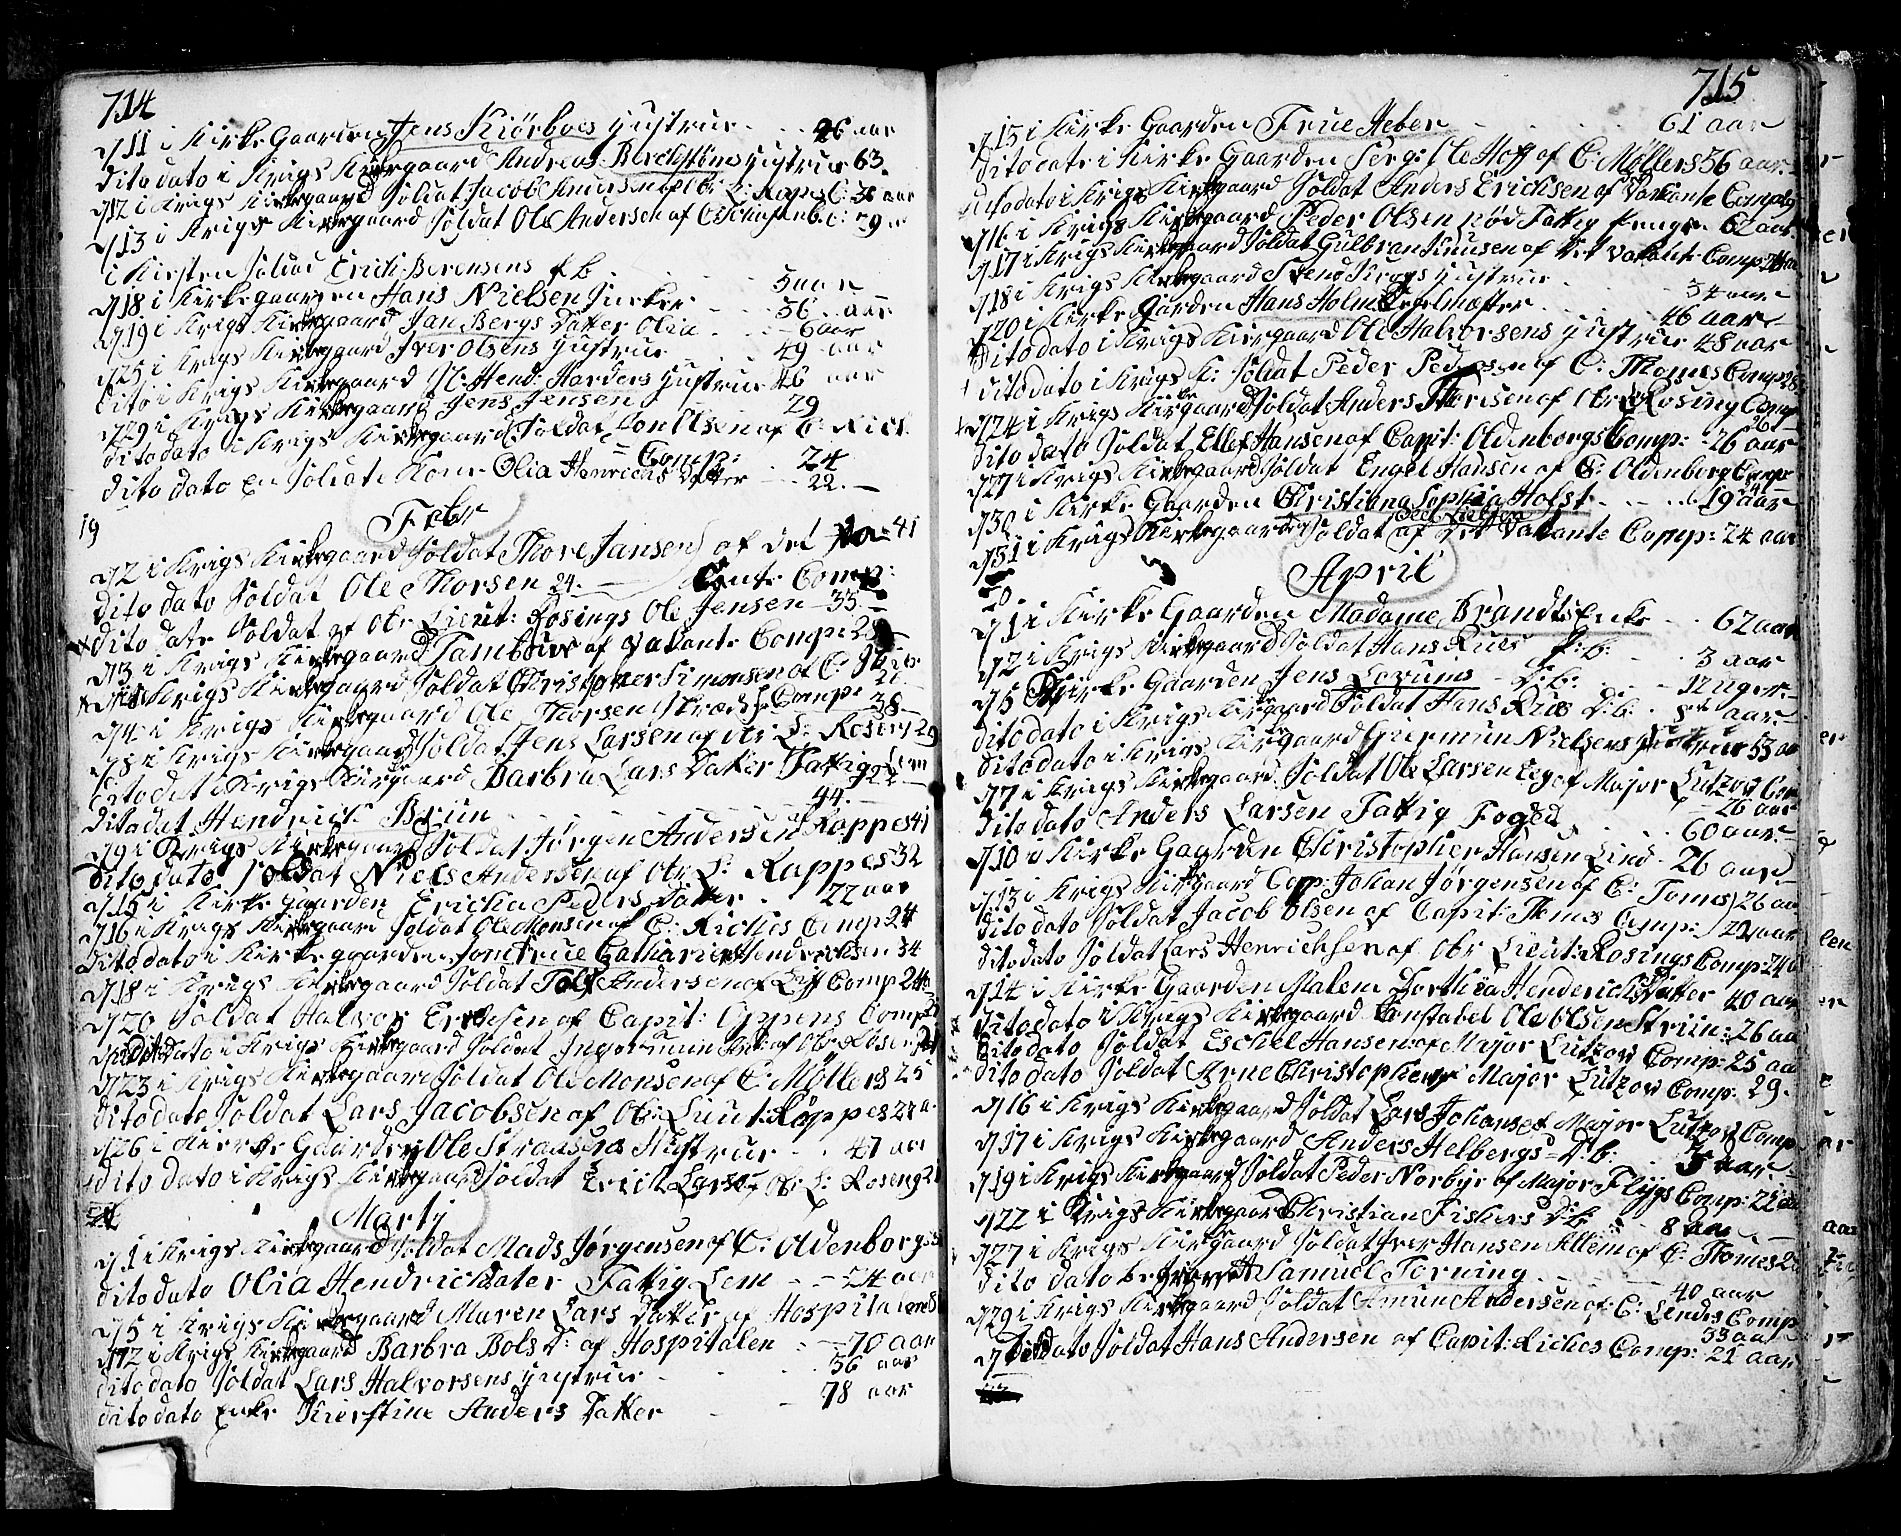 714
d 11 i Kirke Gaarden Jens Kiörboes Hustrue - - 26 aar
dito dato i Krigs Kirkegaard Andreas Berchstøms Hustrue 63.
d 12 i Krigs Kirkegaard Soldat Jacob Knudsen af Obr: L: Kaps C: 30 aar
d 13 i Krigs Kirkegaard Soldat Ole Andersen af C: 29
i Kirsten Soldat Erich Berensens d. b. - - 5 aar
d 18 i Kirkegaarden Hans Nielsen Junker - - 56 aar
d 19 i Krigs Kirkegaard Jan Bergs Datter Olia - - 6 aar
d 25 i Krigs Kirkegaard Iver Olsens Hustrue - - 49 aar
dito i Krigs Kirkegaard Hend: Harders Hustrue 46 aar
d 29 i Krigs Kirkegaard Jens Jensen 29
dito dato i Krigs Kirkegaard Soldat Olsen af C: Rich:
Comp: 24
dito dato en Soldate Kone Olia Henrichs Datter - - 22. -
19
Febr
d 2 i Krigs Kirkegaard Soldat Thore Jansen af det Va= 41
dito dato Soldat Ole Thorsen 24. - cante Comp:
dito dato Soldat af Obr Lieut: Rosings Ole Jensen - 33. -
d 3 i Krigs Kirkegaard Tambour af Vakante Comp: 2
i Krigs Kirkegaard Soldat Christopher Simonsen af C:
Comp:
d 4 i Krigs Kirkegaard Ole Thorsen 38. -
d 8 i Krigs Kirkegaard Soldat Jens Larsen af Obr L: Rosings 29
dito dat i Krigs Kirkegaard Barbra Lars Datter Fattig Lem
44. -
dito dat Hendrich Brün - -
d 9 i Krigs Kirkegaard Soldat Jørgen Andersen af Kappes 41
dito dato Soldat Niels Andersen af Obr L: Kappes 32
d 15 i Kirke gaarden Ericka Peders Datter - 22 aar
d 16 i Krigs Kirkegaard Soldat Ole Monsen af C: Riches Comp 24
dito dato i Kirke gaarden Jomfrue Catharie Hendrichsen 34
d 18 i Krigs Kirkegaard Soldat Tolf Andersen af Comp 24
d 20 Soldat Halvor Erichsen af Capit: Oppens Comp
dito dato i Krigs Kirkegaard Soldat Ingormun af Obr L: Rosen
d 23 i Krigs Kirkegaard Soldat Ole Monsen af C: Møllers 25
dito dato Soldat Lars Jacobsen af Obr: Lieut: Kappes 22 a
d 26 i Kierke Gaarden Ole Straasens Hustrue - - 47 aar
dito dato i Krigs Kirkegaard Soldat Erich Larsen af Obr L: Roseng 2
Martj
d 1 i Krigs Kirkegaard Soldat Mads Jørgensen af C: Oldenborgs
dito dato Olia Hendrichdater Fattig Lem - - 54 aar
d 5 i Krigs Kirkegaard Maren Lars Datter af Hospitalen
d 12 i Krigs Kirkegaard Barbra Bols D: af Hospitalen - 70 aar
dito dato Soldat Lars Halvorsens Hustrue - - 36 aar
dito dato Enke Kierstine Anders Datter - - 78 aar
715
d 15 i Kirke Gaarden Frue Heber - - 61 aar
dito dato i Kirke Gaarden Serg: Ole Hoff af C: Møllers 56 aar. -
dito dato i Krigs Kirkegaard Soldat Anders Erichsen af Vakante Comp
d 16 i Krigs Kirkegaard Peder Olsen nød Fattig Penge 62 aar.
d 17 i Krigs Kirkegaard Soldat Gulbran Knusen af det Vakante Comp: 24 aa
d 18 i Krigs Kirkegaard Svend Krags Hustrue - 34 aar -
d 20 i Kirke Gaarden Hans Holm Segelmaster - 46 aar -
dito dato i Krigs Kirkegaard Ole Halvorsens Hustrue 48 aar
dito dato i Krigs K: Soldat Peder Pedersen af C: Thomes Comp 28
d 24 i Krigs Kirkegaard Soldat Anders Thorsen af Obr L: Rosing Comp
26
dito dato Soldat Ellef Hansen af Capit: Oldenborgs Comp: 26 aar
d 27 i Krigs Kirkegaard Soldat Engel Hansen af C: Oldenborg Comp
d 30 i Kirke Gaarden Christiana Sophia Holst - - 19 aar
d 31 i Krigs Kirkegaard Soldat af det Vakante Comp: 24 aar
April
d 1 i Kirke Gaarden Madame Brandts Enke - - 62 aar
d 2 i Krigs Kirkegaard Soldat Hans Rües d: b: - 3 aar
d 5 Kirke Gaarden Jens Lorums - d: b: - - 12 Uger. -
dito dato i Krigs Kirkegaard Soldat Hans Rües d: b: aar. -
dito dato i Krigs Kirkegaard Guermun Nielsens Hustrue 53 aa
d 7 i Krigs Kirkegaard Soldat Ole Larsen Eeg af Major Lützov Com
26 aar
dito dato Anders Larsen Fattig Foged - - 60 aar -
d 10 i Kirke Gaarden Christopher Hansen Lind - 26 aar -
d 13 i Krigs Kirkegaard Cop: Johan Jørgensen af C: Tomes 26 aa
dito dato Soldat Jacob Olsen af Capit: Thomes Comp: 22 aar
dito dato Soldat Lars Henrichsen af Obr Lieut: Rosings Comp 24
d 14 i Kirke Gaarden Malene Dorthea Henderichsdatter 40 aar
dito dato i Krigs Kirkegaard Constabel Ole Olsen Strün: 26 aa
dito dato Soldat Eschel Hansen af Major Lützov Comp: 25 aa
dito dato Soldat Arne Christophersen Major Lützov Comp: 29.
d 16 i Krigs Kirkegaard Soldat Lars Johanse af Major Lützov Comp
d 17 i Krigs Kirkegaard Anders Helbergs - d b: - 3 aar -
d 19 i Krigs Kirkegaard Soldat Peder Norbye af Major Flygs Comp: 22 aa
d 22 i Krigs Kirkegaard Christian Fishers d b: 8 aar -
d 27 i Krigs Kirkegaard Soldat Iver Hansen Allem af C: Thomes 2
dito dato begravet Samuel Torning - - 40 aar
d 29 i Krigs Kirkegaard Soldat Amun Andersen af C: Linds Comp
33 aa
dito dato Soldat Hans Andersen af Capit: Riches Comp: 21 aar